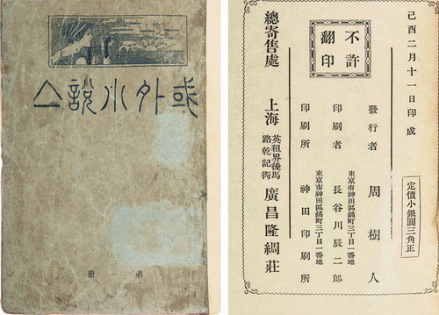 或外小說亼
弟 冊
己酉二月十一日印成
定價小銀圓三角正
發行者 周樹人
印刷者 東京市神田區錦町三丁目一番地 長谷川辰二郎
印刷所 東京市神田區錦町三丁目一番地 神田印刷所
不許
翻印
總寄售處 上海 英租界後馬
路乾記衖 廣昌隆綢莊